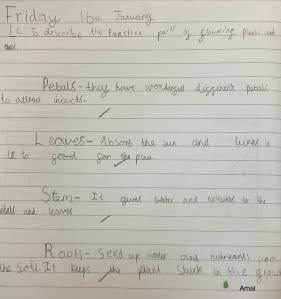 Friday 16th January
LC To describe the function parts of flowering plants and
trees.
Petals- they have wonderfull different petals
to attract insects.
Leaves- Absorb the sun and turns i
it to food for the plan
Stem- It gives water and nutrients to the
petals and leaves
Roots- Send up water and nutrients from
the soil. It keeps the plant stuck in the grou
Amal